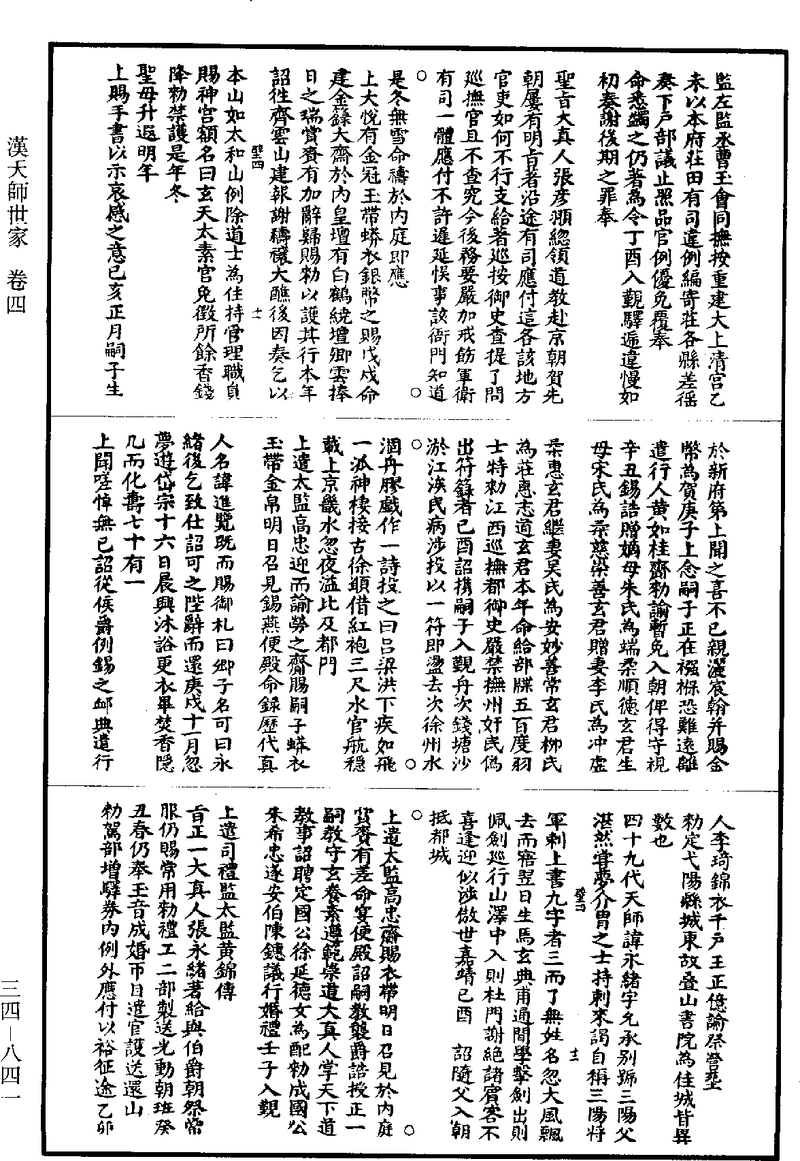 監左監丞曹玉會同撫按重建大上清宮乙
未以本府莊田有司違例編寄莊各縣差徭
奏下戶部議止照品官例優免覆奉
命悉蠲之仍著為令丁酉入覲驛遞違慢如
初奏謝後期之罪奉
聖旨大真人張彥頨總領道教赴京朝賀先
朝屢有明旨者沿途有司應付這各該地方
官吏如何不行支給著巡按御史查提了問
巡撫官且不查究今後務要嚴加戒飭軍衛
有司一體應付不許遲延悞事該衙門知道
是冬無雪命禱於內庭即應
上大悅有金冠玉帶蟒衣銀幣之賜戊戌命
建金籙大齋於內皇壇有白鶴繞壇卿雲捧
日之瑞賞賚有加辭歸賜勑以護其行本年
詔往齊雲山建報謝禱禳大醮後因奏乞以
壁四
十一
本山如太和山例除道士為住持管理職負
賜神宮額名曰玄天太素宮免徵所餘香錢
降勑禁護是年冬
聖母升遐明年
上賜手書以示哀感之意己亥正月嗣子生
於新府第上聞之喜不已親灑宸翰并賜金
幣為賀庚子上念嗣子正在襁褓恐難遠離
遣行人黃如桂齋勑諭暫免入朝俾得守視
辛丑錫誥贈嫡母朱氏為端柔順德玄君生
母宋氏為柔慈崇善玄君贈妻李氏為冲虛
柔惠玄君繼妻吳氏為安妙善常玄君柳氏
為莊惠志道玄君本年命給部牒五百度羽
士特勑江西巡撫都御史嚴禁撫州奸民偽
出符籙者己酉詔携嗣子入覲舟次錢塘沙
淤江涘民病涉投以一符即盪去次徐州水
涸舟膠戲作一詩投之曰呂梁洪下疾如飛
一泒神棲接古徐顗借紅袍三尺水官航穩
載上京畿水忽夜溢比及都門
上遣太監高忠迎而諭勞之齋賜嗣子蟒衣
玉帶金帛明日召見錫燕便殿命錄歷代真
人名諱進覽既而賜御札曰卿子名可曰永
緒後乞致仕詔可之陛辭而還庚戌十一月忽
夢遊岱宗十六日晨興沐浴更衣畢焚香隱
几而化壽七十有一
上聞嗟悼無已詔從侯爵例錫之卹典遣行
人李琦錦衣千戶王正億諭祭營塋
勑定弋陽縣城東故疊山書院為佳城皆異
數也
四十九代天師諱永緒字允承別號三陽父
湛然嘗夢介胄之士持刺來謁自稱三陽將
壁四
十二
軍刺上書九字者三而了無姓名忽大風飄
去而寤翌日生馬玄典甫通間學擊劍出則
佩劍巡行山澤中入則杜門謝絕諸賓客不
喜逢迎似涉傲世嘉靖己酉 詔隨父入朝
抵都城
上遣太監高忠齋賜衣帶明日召見於內庭
賞賚有差命宴便殿詔嗣教襲爵誥授正一
嗣教守玄養素遵範崇道大真人掌天下道
教事詔聘定國公徐延德女為配勑成國公
朱希忠遂安伯陳鏸議行婚禮壬子入覲
上遣司禮監太監黃錦傳
旨正一大真人張永緒著給與伯爵朝祭常
服仍賜常用勑禮工二部製送光動朝班癸
丑春仍奉玉音成婚帀月遣官護送還山
勑駕部增驛券內例外應付以裕征途乙卯
漢天師世家 卷四
三四—八四一